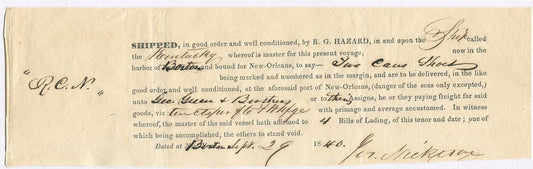 SHIPPED, in good order and well conditioned, by R. G. HAZARD, in and upon the Ship called
the Kentucky whereof is master for this present voyage, now in the
harbor of Boston and bound for New-Orleans, to say— Two Cases Shoes
"R.C.N." being marked and numbered as in the margin, and are to be delivered, in the like
good order, and well conditioned, at the aforesaid port of New-Orleans, (danger of the seas only excepted,)
unto Geo. Green & Brothers or to their assigns, he or they paying freight for said
goods, viz with primage and average accustomed. In witness
whereof, the master of the said vessel hath affirmed to 4 Bills of Lading, of this tenor and date; one of
which being accomplished, the others to stand void.
Dated at Boston Sept. 29 1840. Jos. Nickerson